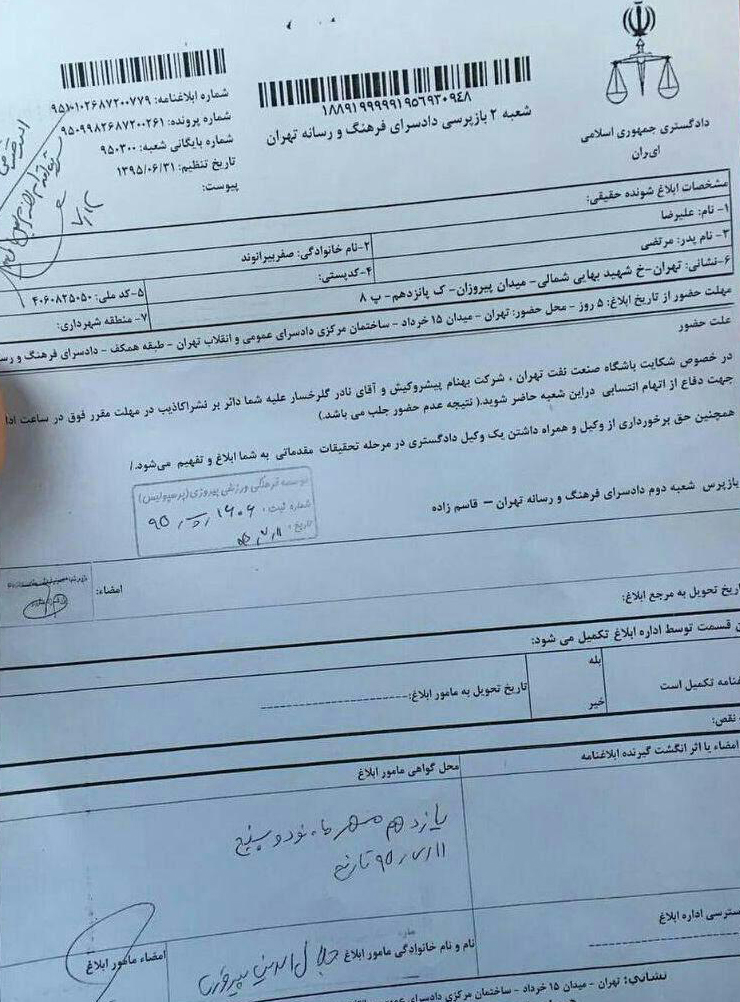 ۱۸۸۹۱۹۹۹۹۹۱۹۵۶۹۳۰۹۴۸
شعبه ۲ بازپرسی دادسرای فرهنگ و رسانه تهران
دادگستری جمهوری اسلامی
ایران
شماره ابلاغنامه: ۹۵۱۰۱۰۲۶۸۷۲۰۰۷۷۹
شماره پرونده: ۹۵۰۹۹۸۲۶۸۷۲۰۰۲۶۱
شماره بایگانی شعبه: ۹۵۰۳۰۰
تاریخ تنظیم: ۱۳۹۵/۰۶/۳۱
پیوست:
۷/۱۲
مشخصات ابلاغ شونده حقیقی:
۱- نام: علیرضا
۲-نام خانوادگی: صفربیرانوند
۳- نام پدر: مرتضی
۴-کدپستی:
۵-کد ملی: ۴۰۶۰۸۲۵۰۵۰
۶-نشانی: تهران-خ شهید بهایی شمالی- میدان پیروزان- ک پانزدهم- پ ۸
۷- منطقه شهرداری:
مهلت حضور از تاریخ ابلاغ: ۵ روز - محل حضور: تهران - میدان ۱۵ خرداد - ساختمان مرکزی دادسرای عمومی و انقلاب تهران - طبقه همکف - دادسرای فرهنگ و رسا
علت حضور
در خصوص شکایت باشگاه صنعت نفت تهران ، شرکت بهنام پیشروکیش و آقای نادر گلرخسار علیه شما دائر بر نشراکاذیب در مهلت مقرر فوق در ساعت ادا
جهت دفاع از اتهام انتسابی دراین شعبه حاضر شوید.( نتیجه عدم حضور جلب می باشد.)
همچنین حق برخورداری از وکیل و همراه داشتن یک وکیل دادگستری در مرحله تحقیقات مقدماتی به شما ابلاغ و تفهیم می‌شود./
موسسه فرهنگی ورزشی پیروزی(پرسپولیس)
شماره ثبت:
تاریخ:
بازپرس شعبه دوم دادسرای فرهنگ و رسانه تهران – قاسم زاده
امضاء:
اریخ تحویل به مرجع ابلاغ:
ن قسمت توسط اداره ابلاغ تکمیل می شود:
غنامه تکمیل است
بله
خیر
تاریخ تحویل به مامور ابلاغ:
نقص:
امضاء یا اثر انگشت گیرنده ابلاغنامه
محل گواهی مامور ابلاغ
یازدهم مهر ماه نود و پنج
تاریخ ۹۵/۷/۱۱
سترسی اداره ابلاغ
نام و نام خانوادگی مامور ابلاغ جلال الدین
امضاء مامور ابلاغ
نشانی: تهران - میدان ۱۵ خرداد - ساختمان مرکزی دادسرای